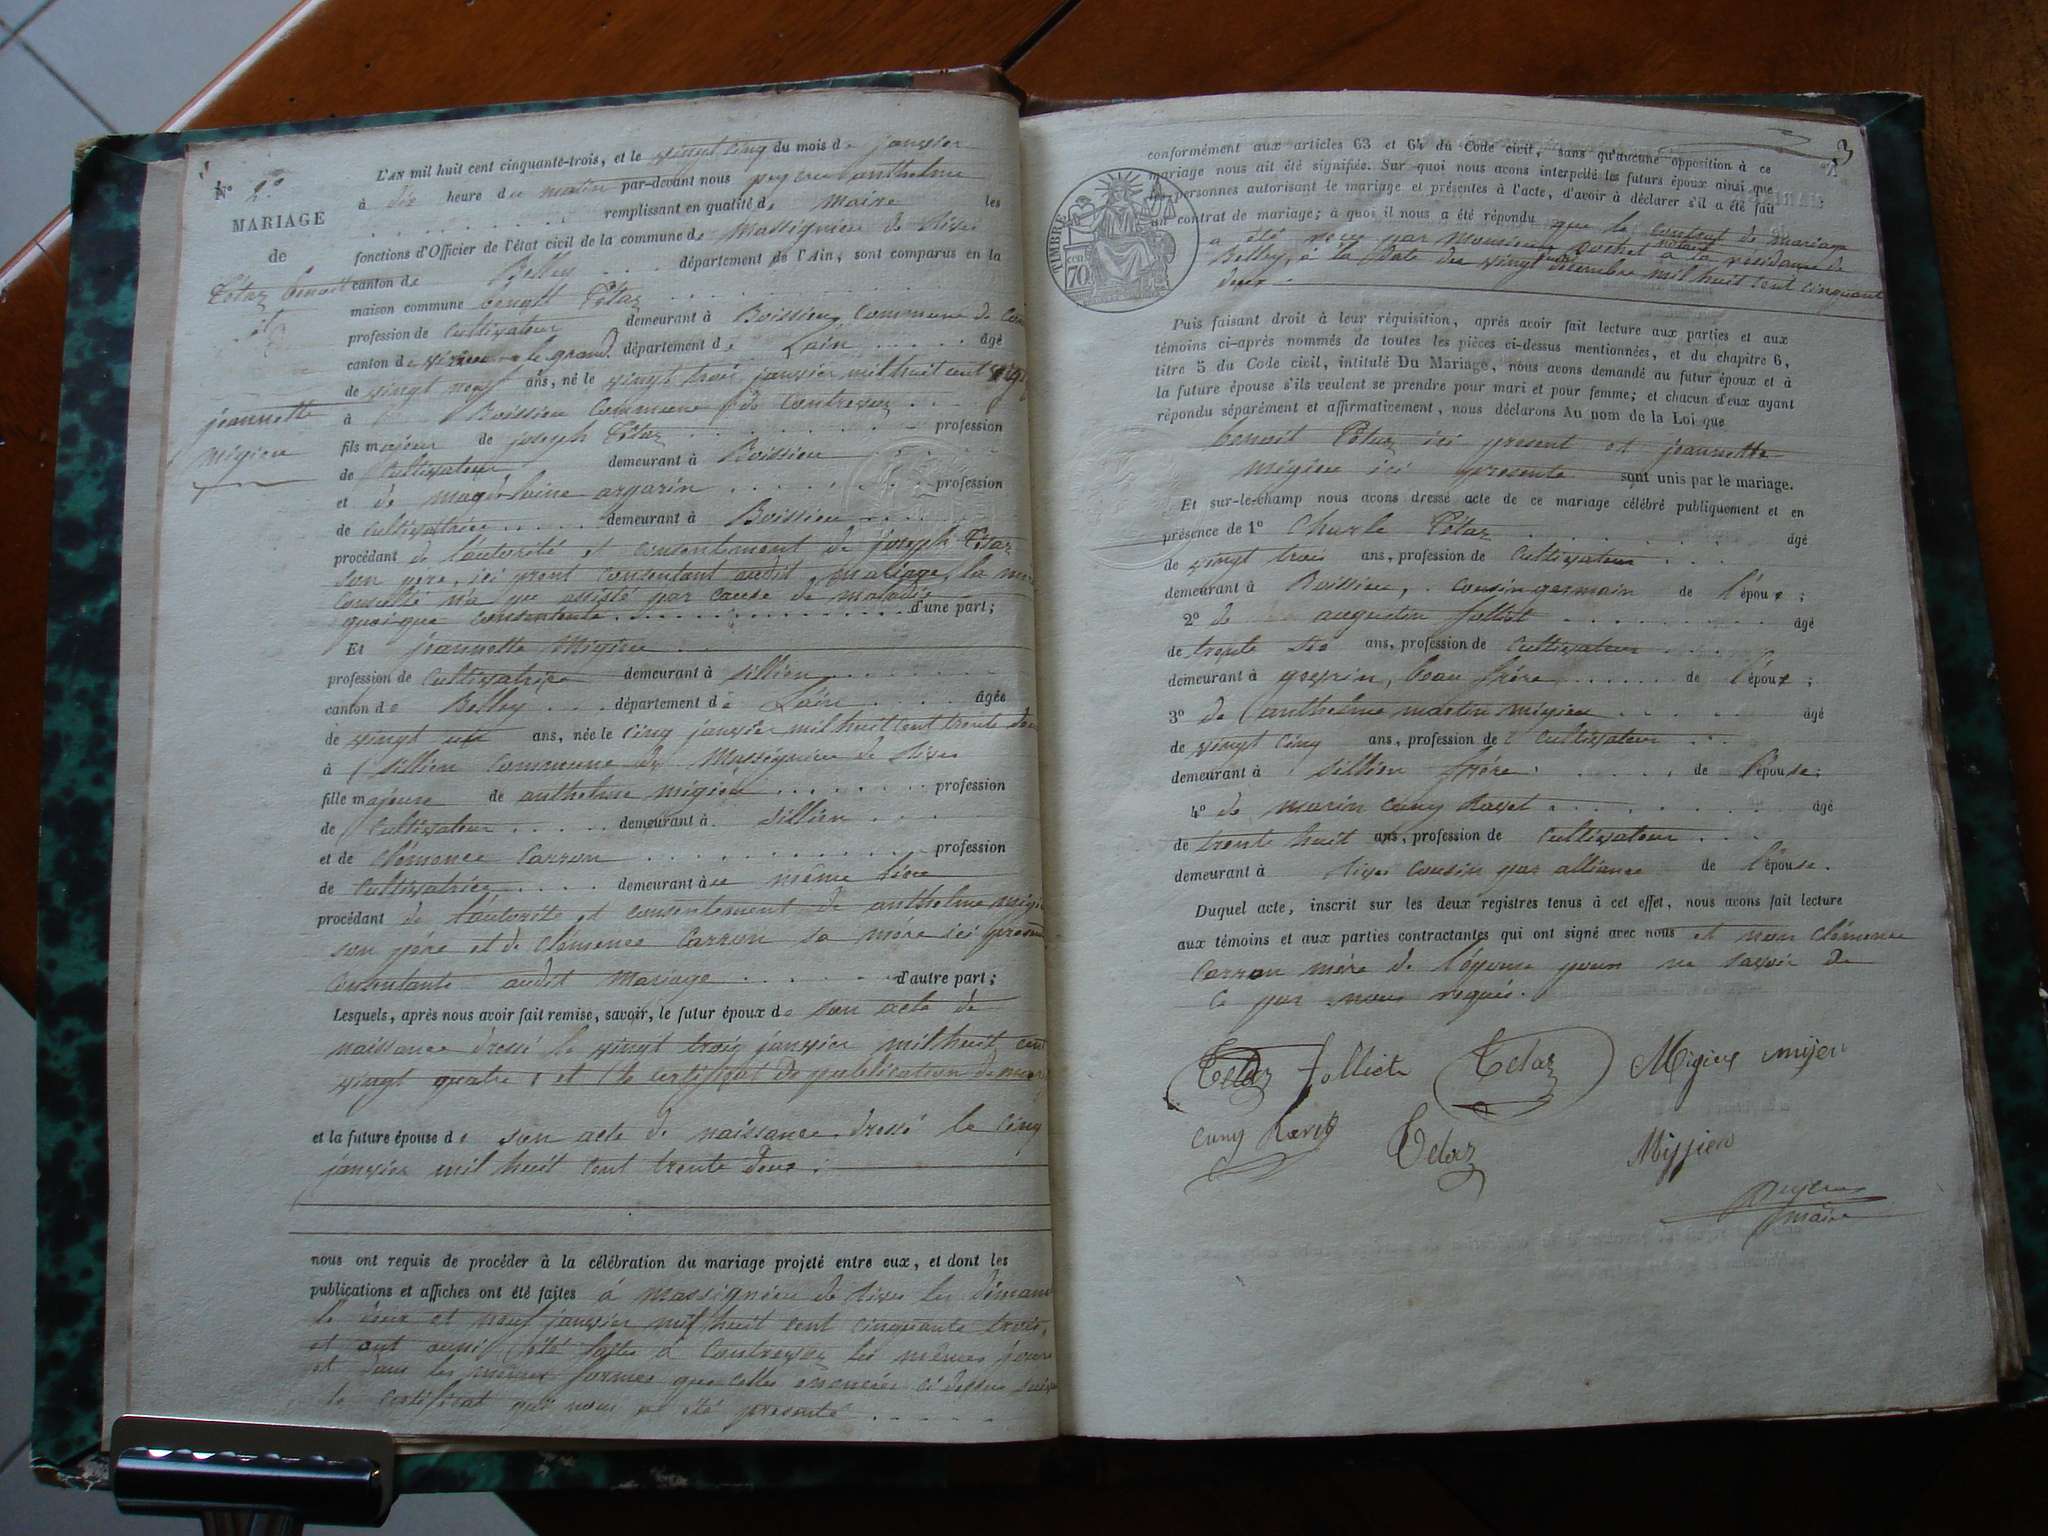 No 2o
MARIAGE
de
Tétaz benoit
et
jeannette
Migieu
L'AN mil huit cent cinquante-trois, et le vingt cinq du mois de janvier
à dix heure du matin par-devant nous peyere anthelme
remplissant en qualité de maire les
fonctions d'Officier de l'état civil de la commune de Massignieu de Rives
canton de Belley département de l'Ain, sont comparus en la
maison commune benoit Tétaz
profession de cultivateur demeurant à Boissieu Commune de
canton de virieu le grand département de Lain âgé
de vingt neuf ans, né le vingt trois janvier mil huit cent
à Boissieu Commune de Contrevoz
fils majeur de joseph Tétaz profession
de Cultivateur demeurant à Boissieu
et de magdelaine argarin profession
de cultivatrice demeurant à Boissieu
procédant de l'autorité et consentement de joseph Tétaz
son pere, ici prent consentant audit mariage, la mere
consulté n'a pu assisté par cause de maladie
quoi que consentente d'une part;
Et jeannette Migieu
profession de cultivatrice demeurant à sillien
canton de Belley département de Lain âgée
de vingt un ans, née le cinq janvier mil huit cent trente deux
à sillien commune de Massignieu de Rives
fille majeure de anthelme migieu profession
de Cultivateur demeurant à sillien
et de clémence Carron profession
de Cultivatrice demeurant à ce même lieu
procédant de l'autorité et consentement de anthelme migieu
son père et de clémence Carron sa mère ici présents
consentants audit mariage d'autre part;
Lesquels, après nous avoir fait remise, savoir, le futur époux de son acte de
naissance dressé le vingt trois janvier mil huit cent
vingt quatre, et le certificat de publication de
et la future épouse de son acte de naissance dressé le cinq
janvier mil huit cent trente deux
nous ont requis de procéder à la célébration du mariage projeté entre eux, et dont les
publications et affiches ont été faites à Massignieu de Rives les dimanches
le deux et neuf janvier mil huit cent cinquante trois,
et ont aussi été faites à Contrevoz les mêmes jours
et dans les mêmes formes que celles énoncées ci dessus suivant
le certificat qui nous a été présenté
3
TIMBRE
70 cen
conformément aux articles 63 et 64 du Code civil, sans qu'aucune opposition à ce
mariage nous ait été signifiée. Sur quoi nous avons interpellé les futurs époux ainsi que
les personnes autorisant le mariage et présentes à l'acte, d'avoir à déclarer s'il a été fait
un contrat de mariage; à quoi il nous a été répondu que le contrat de mariage
a été reçu par Monsieur Rochet notaire a la résidence de
Belley, à la date du vingt decembre mil huit cent cinquante
deux
Puis faisant droit à leur réquisition, après avoir fait lecture aux parties et aux
témoins ci-après nommés de toutes les pièces ci-dessus mentionnées, et du chapitre 6,
titre 5 du Code civil, intitulé Du Mariage, nous avons demandé au futur époux et à
la future épouse s'ils veulent se prendre pour mari et pour femme; et chacun d'eux ayant
répondu séparément et affirmativement, nous déclarons Au nom de la Loi que
benoit Tétaz ici present et jeannette
migieu ici presente sont unis par le mariage.
Et sur-le-champ nous avons dressé acte de ce mariage célébré publiquement et en
présence de 1o Charle Tétaz âgé
de vingt trois ans, profession de cultivateur
demeurant à Boissieu, cousin germain de l'époux;
2o de augustin folliet âgé
de trente six ans, profession de cultivateur
demeurant à beau frère de l'époux;
3o de anthelme martin migieu âgé
de vingt cinq ans, profession de cultivateur
demeurant à sillien frère de l'épouse;
4o de marin cuny Ravet âgé
de trente huit ans, profession de cultivateur
demeurant à Rives cousin par alliance de l'épouse.
Duquel acte, inscrit sur les deux registres tenus à cet effet, nous avons fait lecture
aux témoins et aux parties contractantes qui ont signé avec nous et non clémence
Carron mère de l'épouse pour ne savoir de
ce par nous requis.
Tetaz folliet Tetaz Migieu mijeu
cuny Ravet Tetaz Migieu
peyere
maire